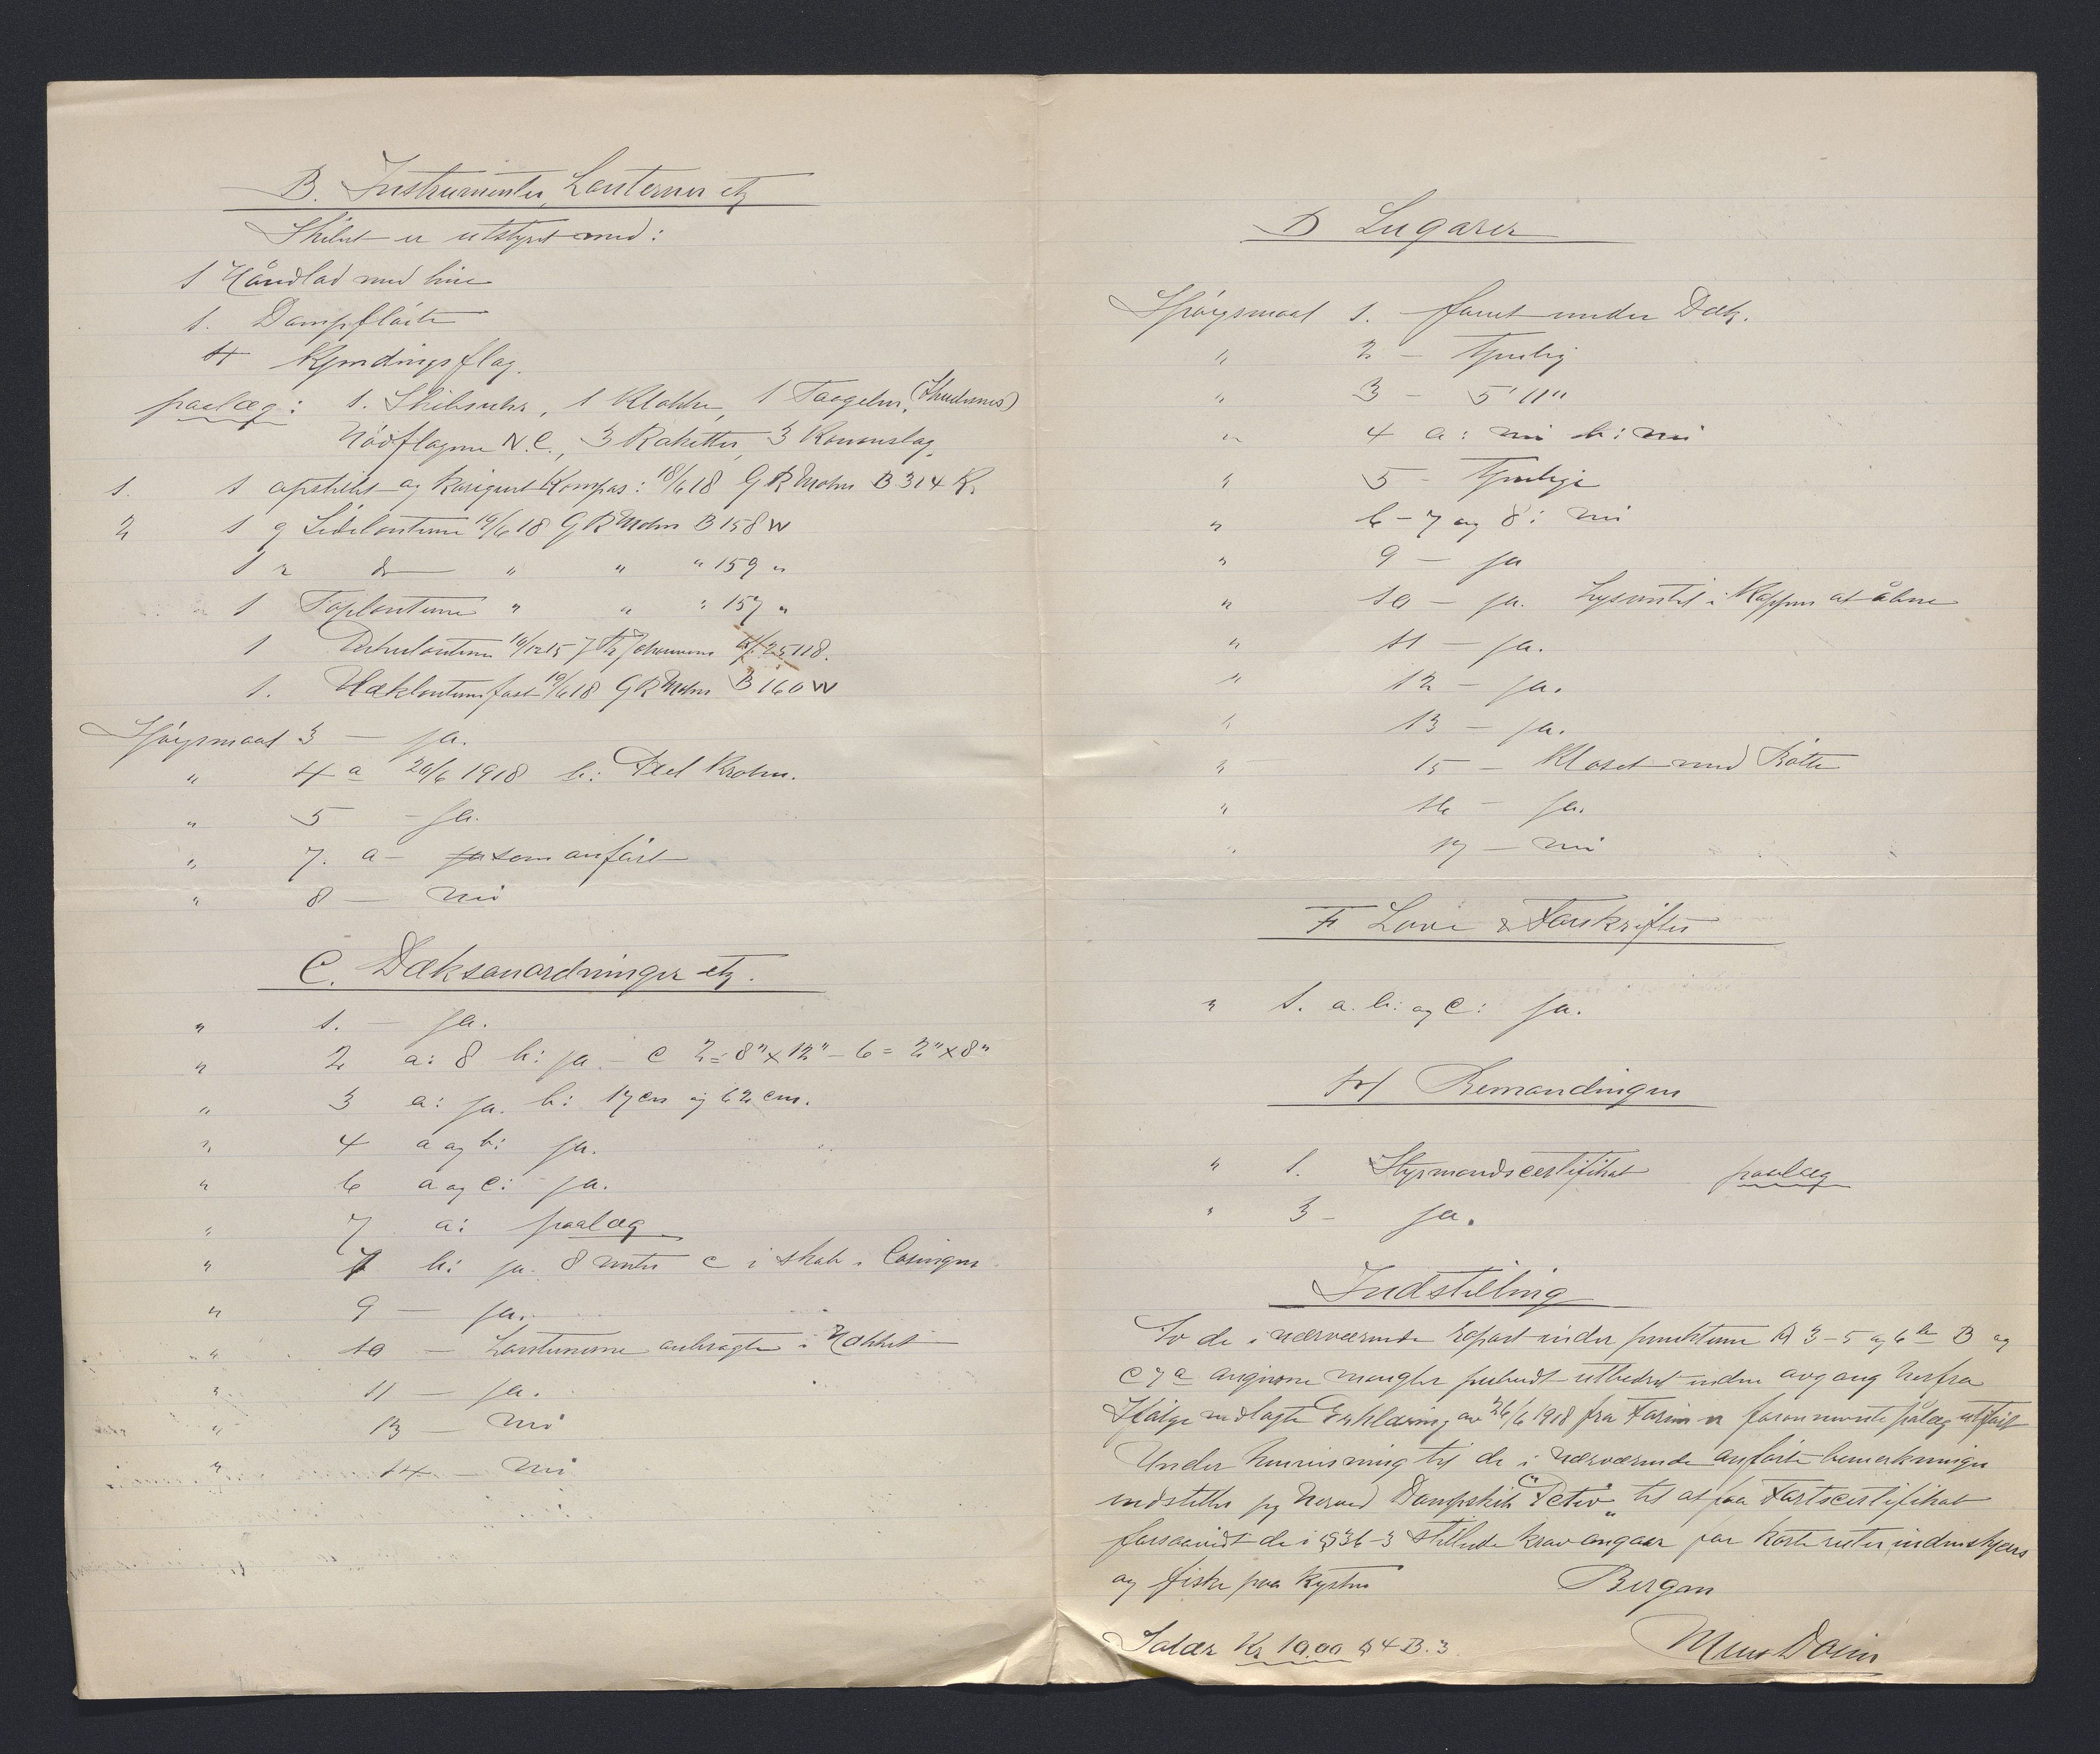 B. Instrumenter, Lanterner etz
Skibet er utstyret med:
1 Håndlod med line
1. Dampfløite
4 Kjendingsflag.
paalæg: 1. Skibsuhr, 1 Klokke, 1 Taagelur, (Skudenes)
Nödflagene N.C., 3 Raketter, 3 Kanonslag.
1. 1 opstillet og korigert Kompas: 18/6 18 G R Mohn B 314 K.
2 1 g Sidelanterne 19/6 18 G R Mohn B 158 W
1 r do " " " 159 "
1 Toplanterne " " " 157 "
1 Dækslanterne 10/12 15 Johannesen 25118.
1. Hæklanterne fast 19/6 18 G R Mohn B 160 W
Spörgsmaal 3 — ja.
" 4 a 20/6 1918 b: Krohn.
" 5 - ja.
" 7. a - ja som anfört
" 8 — nei
C. Dæksanordninger etz.
" 1. — ja.
" 2 a: 8 b: ja - c 2 = 8" x 12" - 6 = 2" x 8"
" 3 a: ja. b: 17 cm og 62 cm.
" 4 a og b: ja.
" 6 a og c: ja.
" 7 a: paalæg
" 7 b: ja. 8 meter c i skab i Casingen
" 9 — ja.
" 10 — Lanternerne anbragte i Hækket
" 11 — ja.
" 13 — nei
" 14 — nei
D Lugarer
Spörgsmaal 1. forut under Dæk.
" 2 - Tjenlig
" 3 - 5' 11"
" 4 a: nei b: nei
" 5 - Tjenlige
" 6 - 7 og 8: nei
" 9 — ja
" 10 — ja. Lysventil i Kappen at åbne
" 11 — ja.
" 12 — ja.
" 13 — ja.
" 15 — Kloset med Bötte
" 16 — ja.
" 17 — nei
F Love & Forskrifter
" 1. a. b: og c: ja.
H Bemandingen
" 1. Styrmandscertifikat paalæg
" 3 - ja.
Indstilling
De i nærværende Raport under punkterne A 3 - 5 og 6 b B og
C 7 a angivne mangler paabudt utbedret inden avgang herfra
Ifölge vedlagte Erklæring av 26/6 1918 fra er forannevnte pålæg utfört
Under henvisning til de i nærværende anförte bemerkninger
indstilles jeg herved Dampskib "Peter" til at faa Fartscertifikat
forsaavidt de i § 36-3 stillede krav angaar for korte reiser indenskjærs
og fiske paa Kysten Bergen
Salær Kr 10.00 § 4 B. 3.